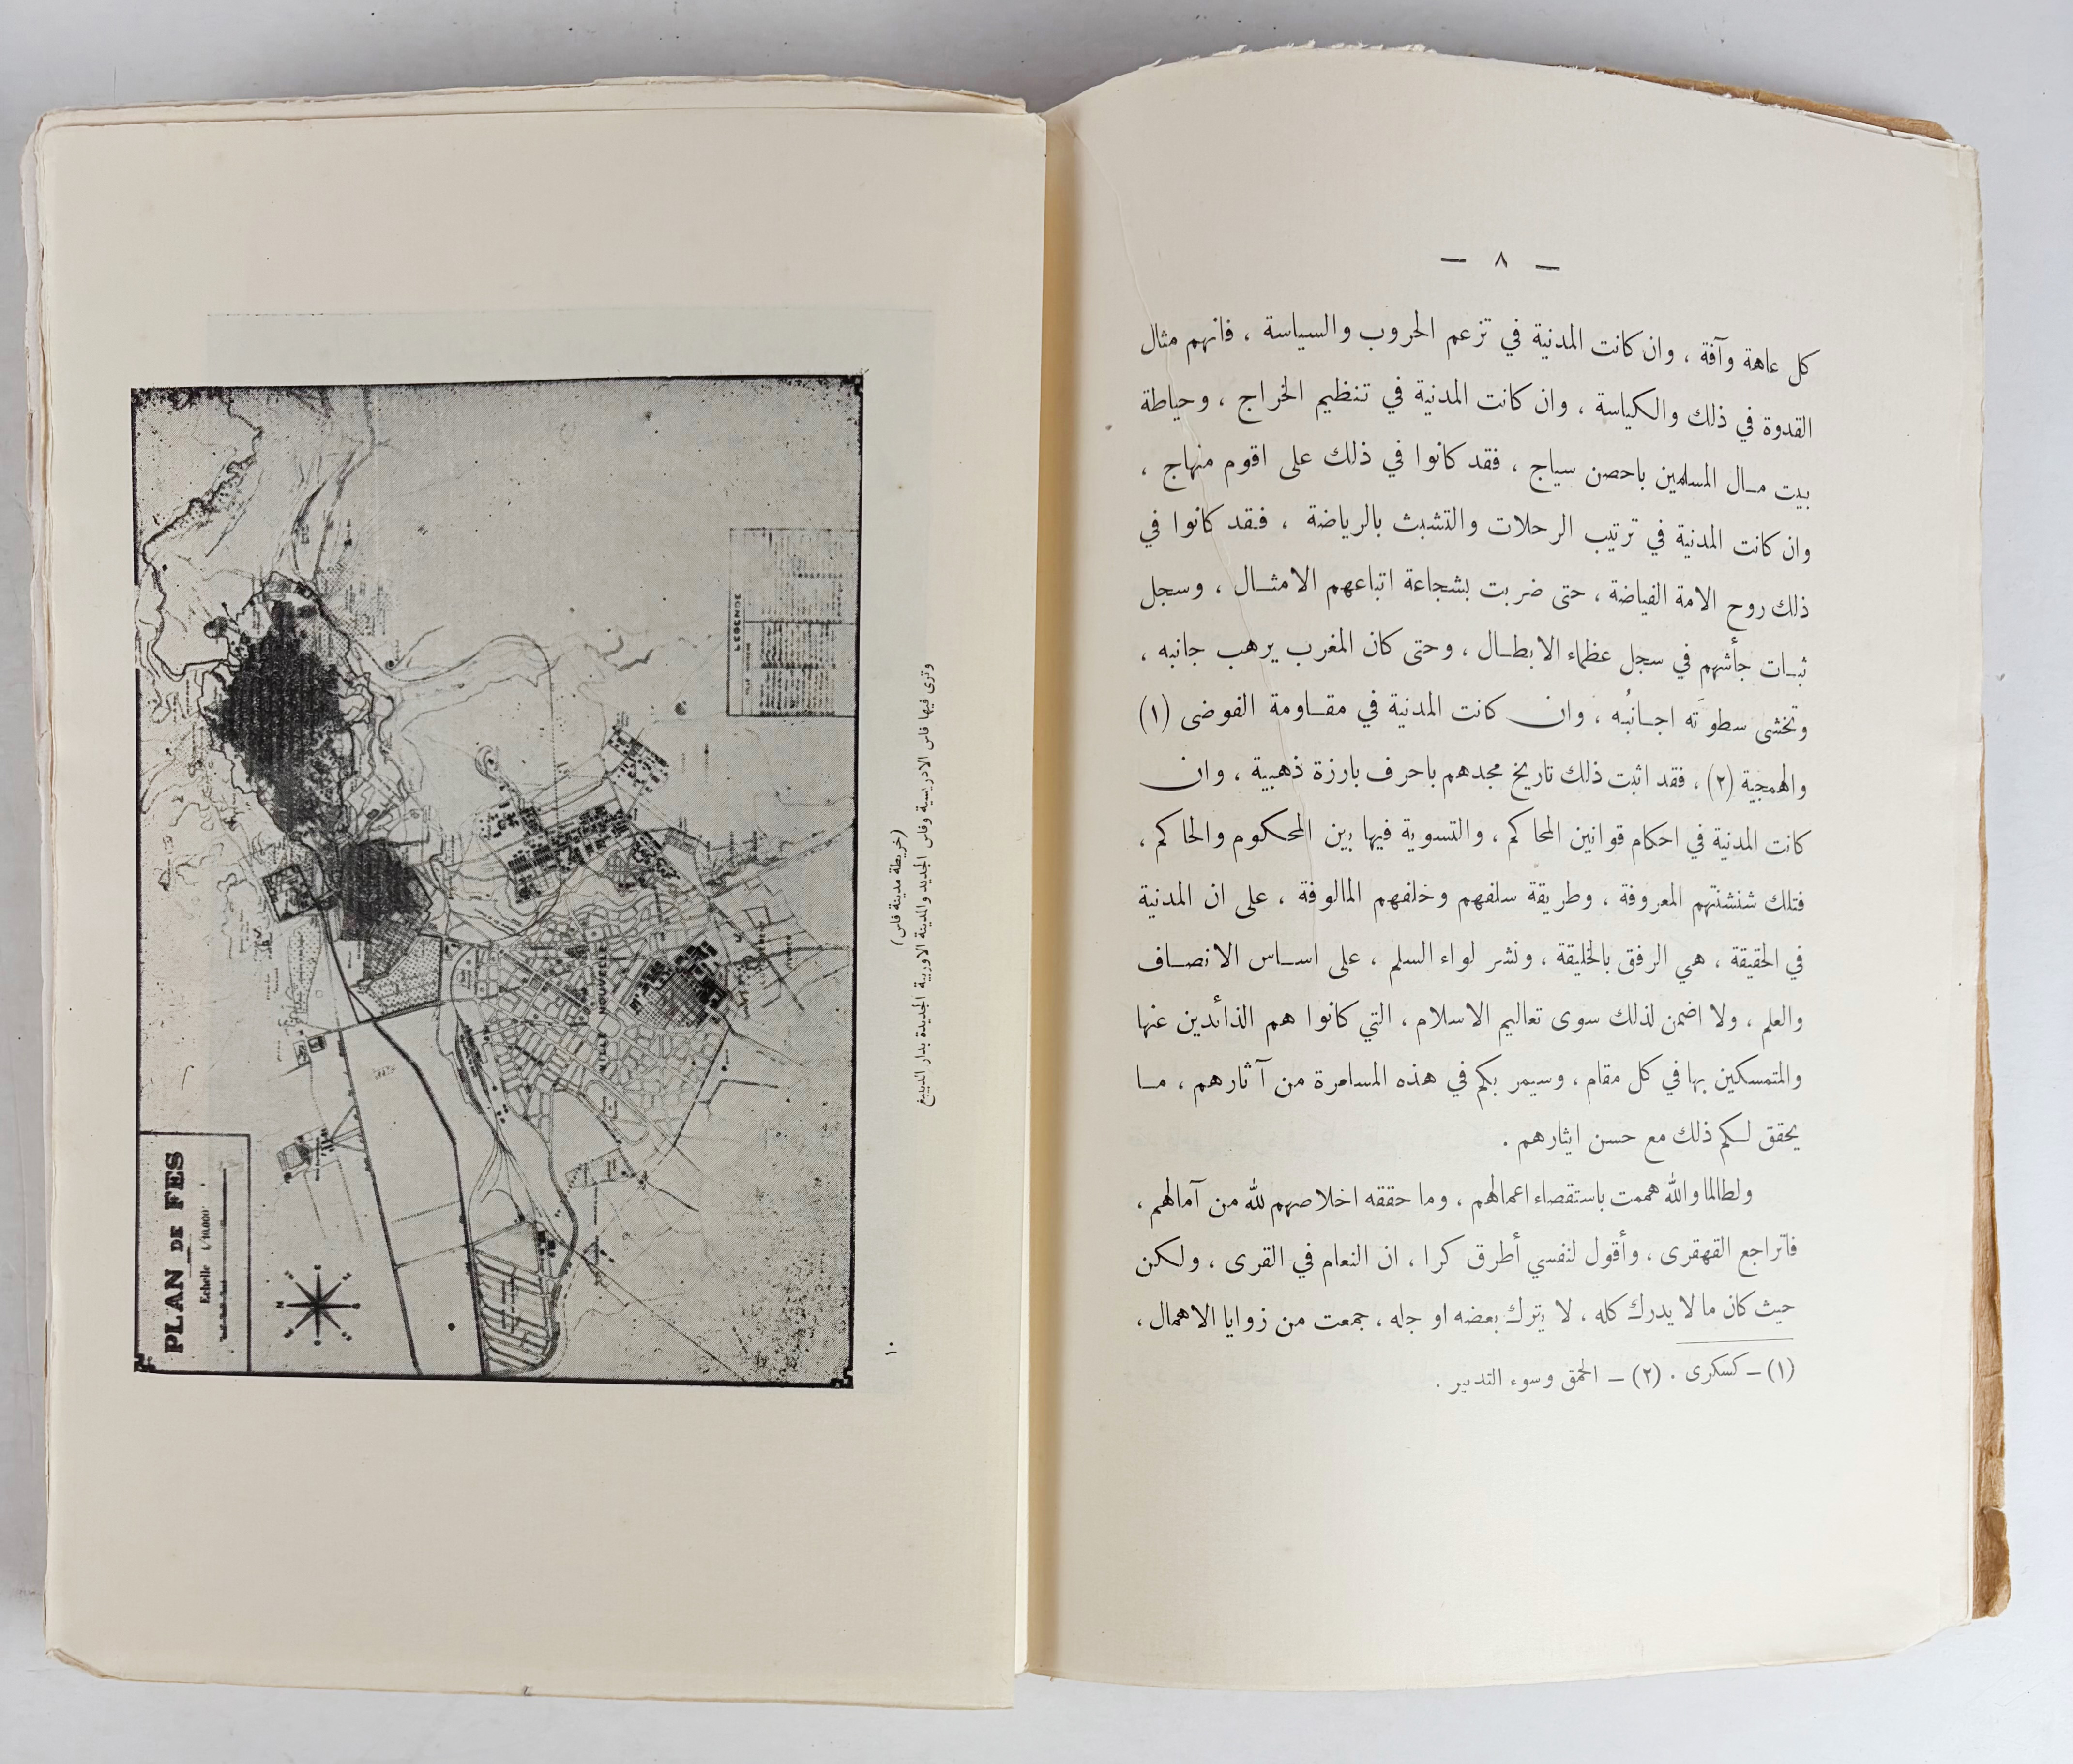 — ٨ —
كل عاهة وآفة ، وان كانت المدنية في تزعم الحروب والسياسة ، فانهم مثال
القدوة في ذلك والكياسة ، وان كانت المدنية في تنظيم الخراج ، وحياطة
بيت مـال المسلمين باحصن سياج ، فقد كانوا في ذلك على اقوم منهاج ،
وان كانت المدنية في ترتيب الرحلات والتشبث بالرياضة ، فـقد كانوا في
ذلك روح الامة الفياضة ، حتى ضربت بشجاعة اتباعهم الامثـال ، وسجل
ثبـات جأشهم في سجل عظماء الابطـال ، وحتى كان المغرب يرهب جانبه ،
وتخشى سطوتَه اجـانبُه ، وان كانت المدنية في مقـاومة الفوضى (١)
والهمجية (٢) ، فقد اثبت ذلك تاريخ مجدهم باحرف بارزة ذهبية ، وان
كانت المدنية في احكام قوانين المحاكم ، والتسوية فيها بين المحكوم والحاكم ،
فتلك شنشنتهم المعروفة ، وطريقة سلفهم وخلفهم المالوفة ، على ان المدنية
في الحقيقة ، هي الرفق بالخليقة ، ونشر لواء السلم ، على اسـاس الانصـاف
والعلم ، ولا اضمن لذلك سوى تعاليم الاسلام ، التي كانوا هم الذائدين عنها
والمتمسكين بها في كل مقام ، وسيمر بكم في هذه المسامرة من آثارهم ، مـا
يحقق لـكم ذلك مع حسن ايثارهم .
ولطالما والله هممت باستقصاء اعمالهم ، وما حققه اخلاصهم لله من آمالهم ،
فاتراجع القهقرى ، وأقول لنفسي أطرق كرا ، ان النعام في القرى ، ولـكن
حيث كان ما لا يدرك كله ، لا يترك بعضه او جله ، جمعت من زوايا الاهمال ،
(١) — كسكرى . (٢) — الحمق وسوء التدبير .
PLAN DE FES
Echelle 1/10.000
LEGENDE
VILLE NOUVELLE
(خريطة مدينة فاس)
وترى فيها فاس الادريسية وفاس الجديد والمدينة الاوربية الجديدة بدار الدبيبغ
١٠